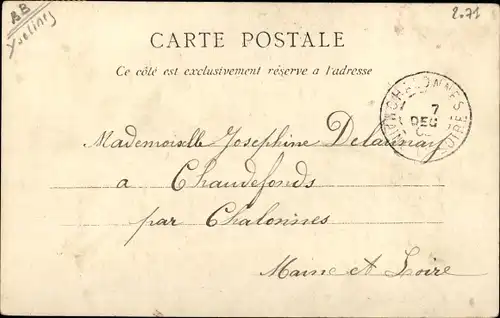 AB
Yvelines
2.71
CARTE POSTALE
Ce côté est exclusivement réservé a l'adresse
7
DEC
Mademoiselle Josephine Delaunay
a Chaudefonds
par Chalonnes
Maine et Loire